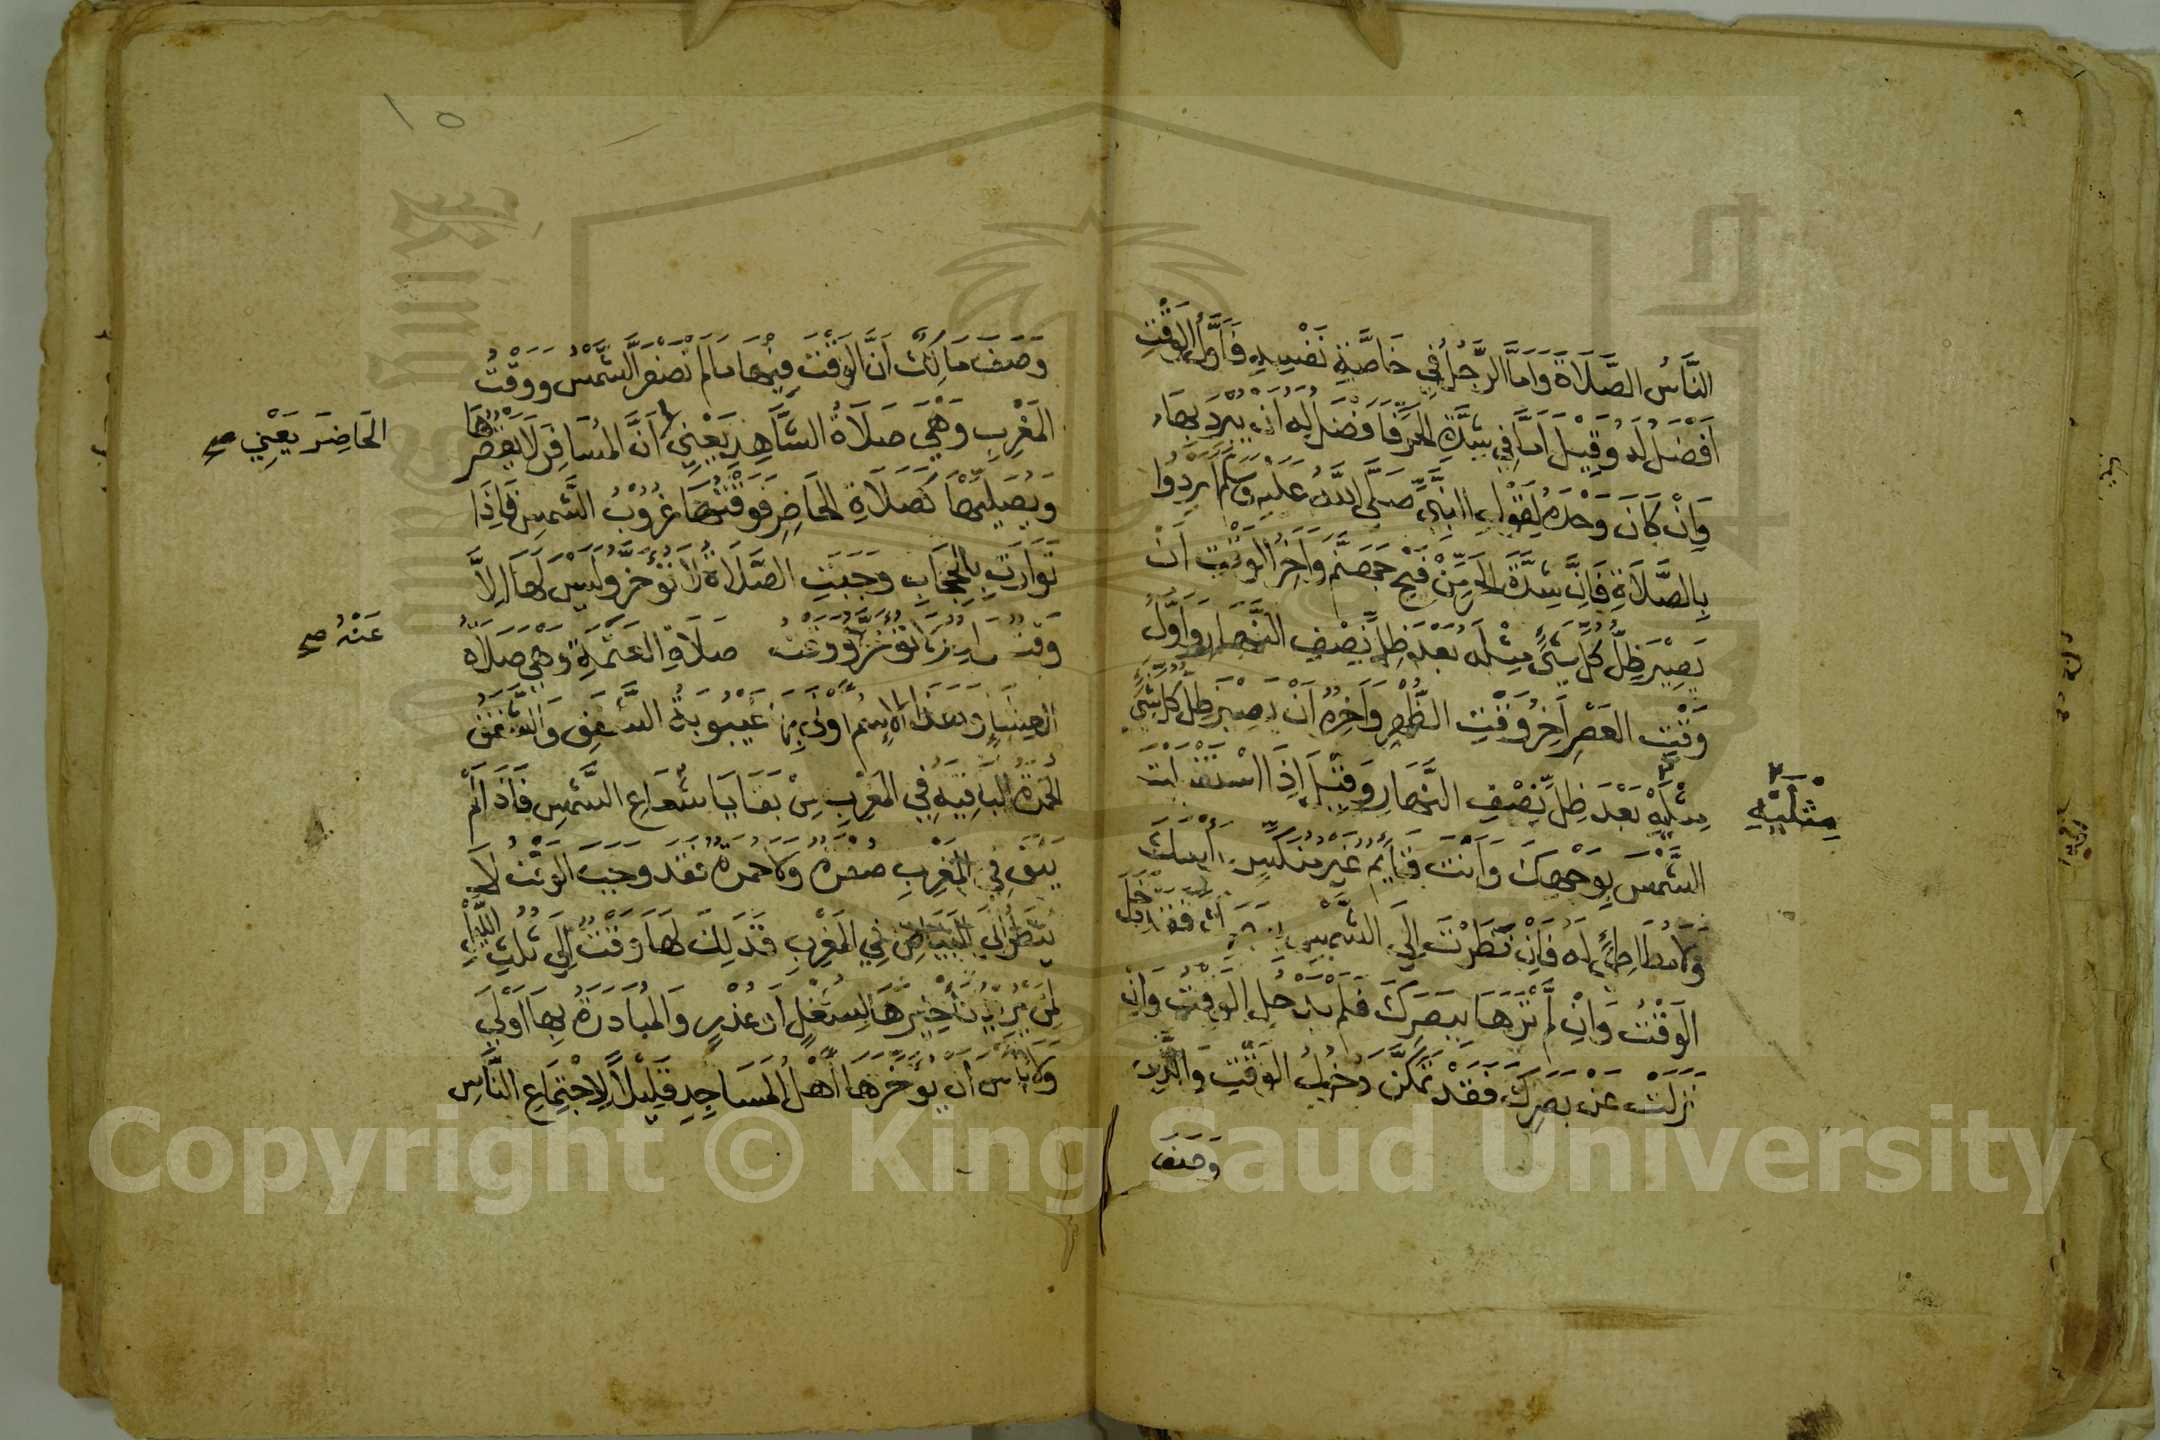 النَّاسُ الصَّلَاةَ وَأَمَّا الرَّجُلُ فِي خَاصَّةِ نَفْسِهِ فَأَوَّلُ الوَقْتِ
أَفْضَلُ لَهُ وَقِيْلَ أَمَّا فِي شِدَّةِ الحَرِّ فَأَفْضَلُ لَهُ أَنْ يُبْرِدَ بِهَا
وَإِنْ كَانَ وَحْدَهُ لِقَوْلِ النَّبِيِّ صَلَّى اللَّهُ عَلَيْهِ وَسَلَّمَ أَبْرِدُوا
بِالصَّلَاةِ فَإِنَّ شِدَّةَ الحَرِّ مِنْ فَيْحِ جَهَنَّمَ وَآخِرُ الوَقْتِ أَنْ
يَصِيْرَ ظِلُّ كُلِّ شَيْءٍ مِثْلَهُ بَعْدَ ظِلِّ نِصْفِ النَّهَارِ وَأَوَّلُ
وَقْتِ العَصْرِ آخِرُ وَقْتِ الظُّهْرِ وَآخِرُهُ أَنْ يَصِيْرَ ظِلُّ كُلِّ شَيْءٍ
مِثْلَيْهِ بَعْدَ ظِلِّ نِصْفِ النَّهَارِ وَقِيْلَ إِذَا اسْتَقْبَلْتَ
مِثْلَيْهِ
الشَّمْسَ بِوَجْهِكَ وَأَنْتَ قَائِمٌ غَيْرُ مُنَكِّسٍ رَأْسَكَ
وَلَا مُطَاطِئٍ لَهُ فَإِنْ نَظَرْتَ إِلَى الشَّمْسِ بِبَصَرِكَ فَقَدْ دَخَلَ
الوَقْتُ وَإِنْ لَمْ تَرَهَا بِبَصَرِكَ فَلَمْ يَدْخُلِ الوَقْتُ وَإِنْ
نَزَلَتْ عَنْ بَصَرِكَ فَقَدْ تَمَكَّنَ دُخُولُ الوَقْتِ وَالَّذِي
وَصَفَ
١٥
وَصَفَ مَالِكٌ أَنَّ الوَقْتَ فِيْهَا مَا لَمْ تَصْفَرَّ الشَّمْسُ وَوَقْتُ
المَغْرِبِ وَهْيَ صَلَاةُ الشَّاهِدِ يَعْنِي أَنَّ المُسَافِرَ لَا يَقْصُرُهَا
الحَاضِرَ يَعْنِي صح
وَيُصَلِّيهَا كَصَلَاةِ الحَاضِرِ فَوَقْتُهَا غُرُوْبُ الشَّمْسِ فَإِذَا
تَوَارَتْ بِالحِجَابِ وَجَبَتِ الصَّلَاةُ لَا تُؤَخَّرُ وَلَيْسَ لَهَا إِلَّا
وَقْتٌ وَاحِدٌ لَا تُؤَخَّرُ وَوَقْتُ صَلَاةِ العَتَمَةِ وَهْيَ صَلَاةُ
عَنْهُ صح
العِشَاءِ وَهَذَا الإِسْمُ أَوْلَى بِهَا غَيْبُوبَةُ الشَّفَقِ وَالشَّفَقُ
الحُمْرَةُ البَاقِيَةُ فِي المَغْرِبِ مِنْ بَقَايَا شُعَاعِ الشَّمْسِ فَإِذَا لَمْ
يَبْقَ فِي المَغْرِبِ صُفْرَةٌ وَلَا حُمْرَةٌ فَقَدْ وَجَبَ الوَقْتُ لَا
يُنْظَرُ إِلَى البَيَاضِ فِي المَغْرِبِ فَذَلِكَ لَهَا وَقْتٌ إِلَى ثُلُثِ اللَّيْلِ
لِمَنْ يُرِيْدُ تَأْخِيْرَهَا لِشُغْلٍ أَوْ عُذْرٍ وَالمُبَادَرَةُ بِهَا أَوْلَى
وَلَا بَأْسَ أَنْ يُؤَخِّرَهَا أَهْلُ المَسَاجِدِ قَلِيْلًا لِاجْتِمَاعِ النَّاسِ
Copyright © King Saud University